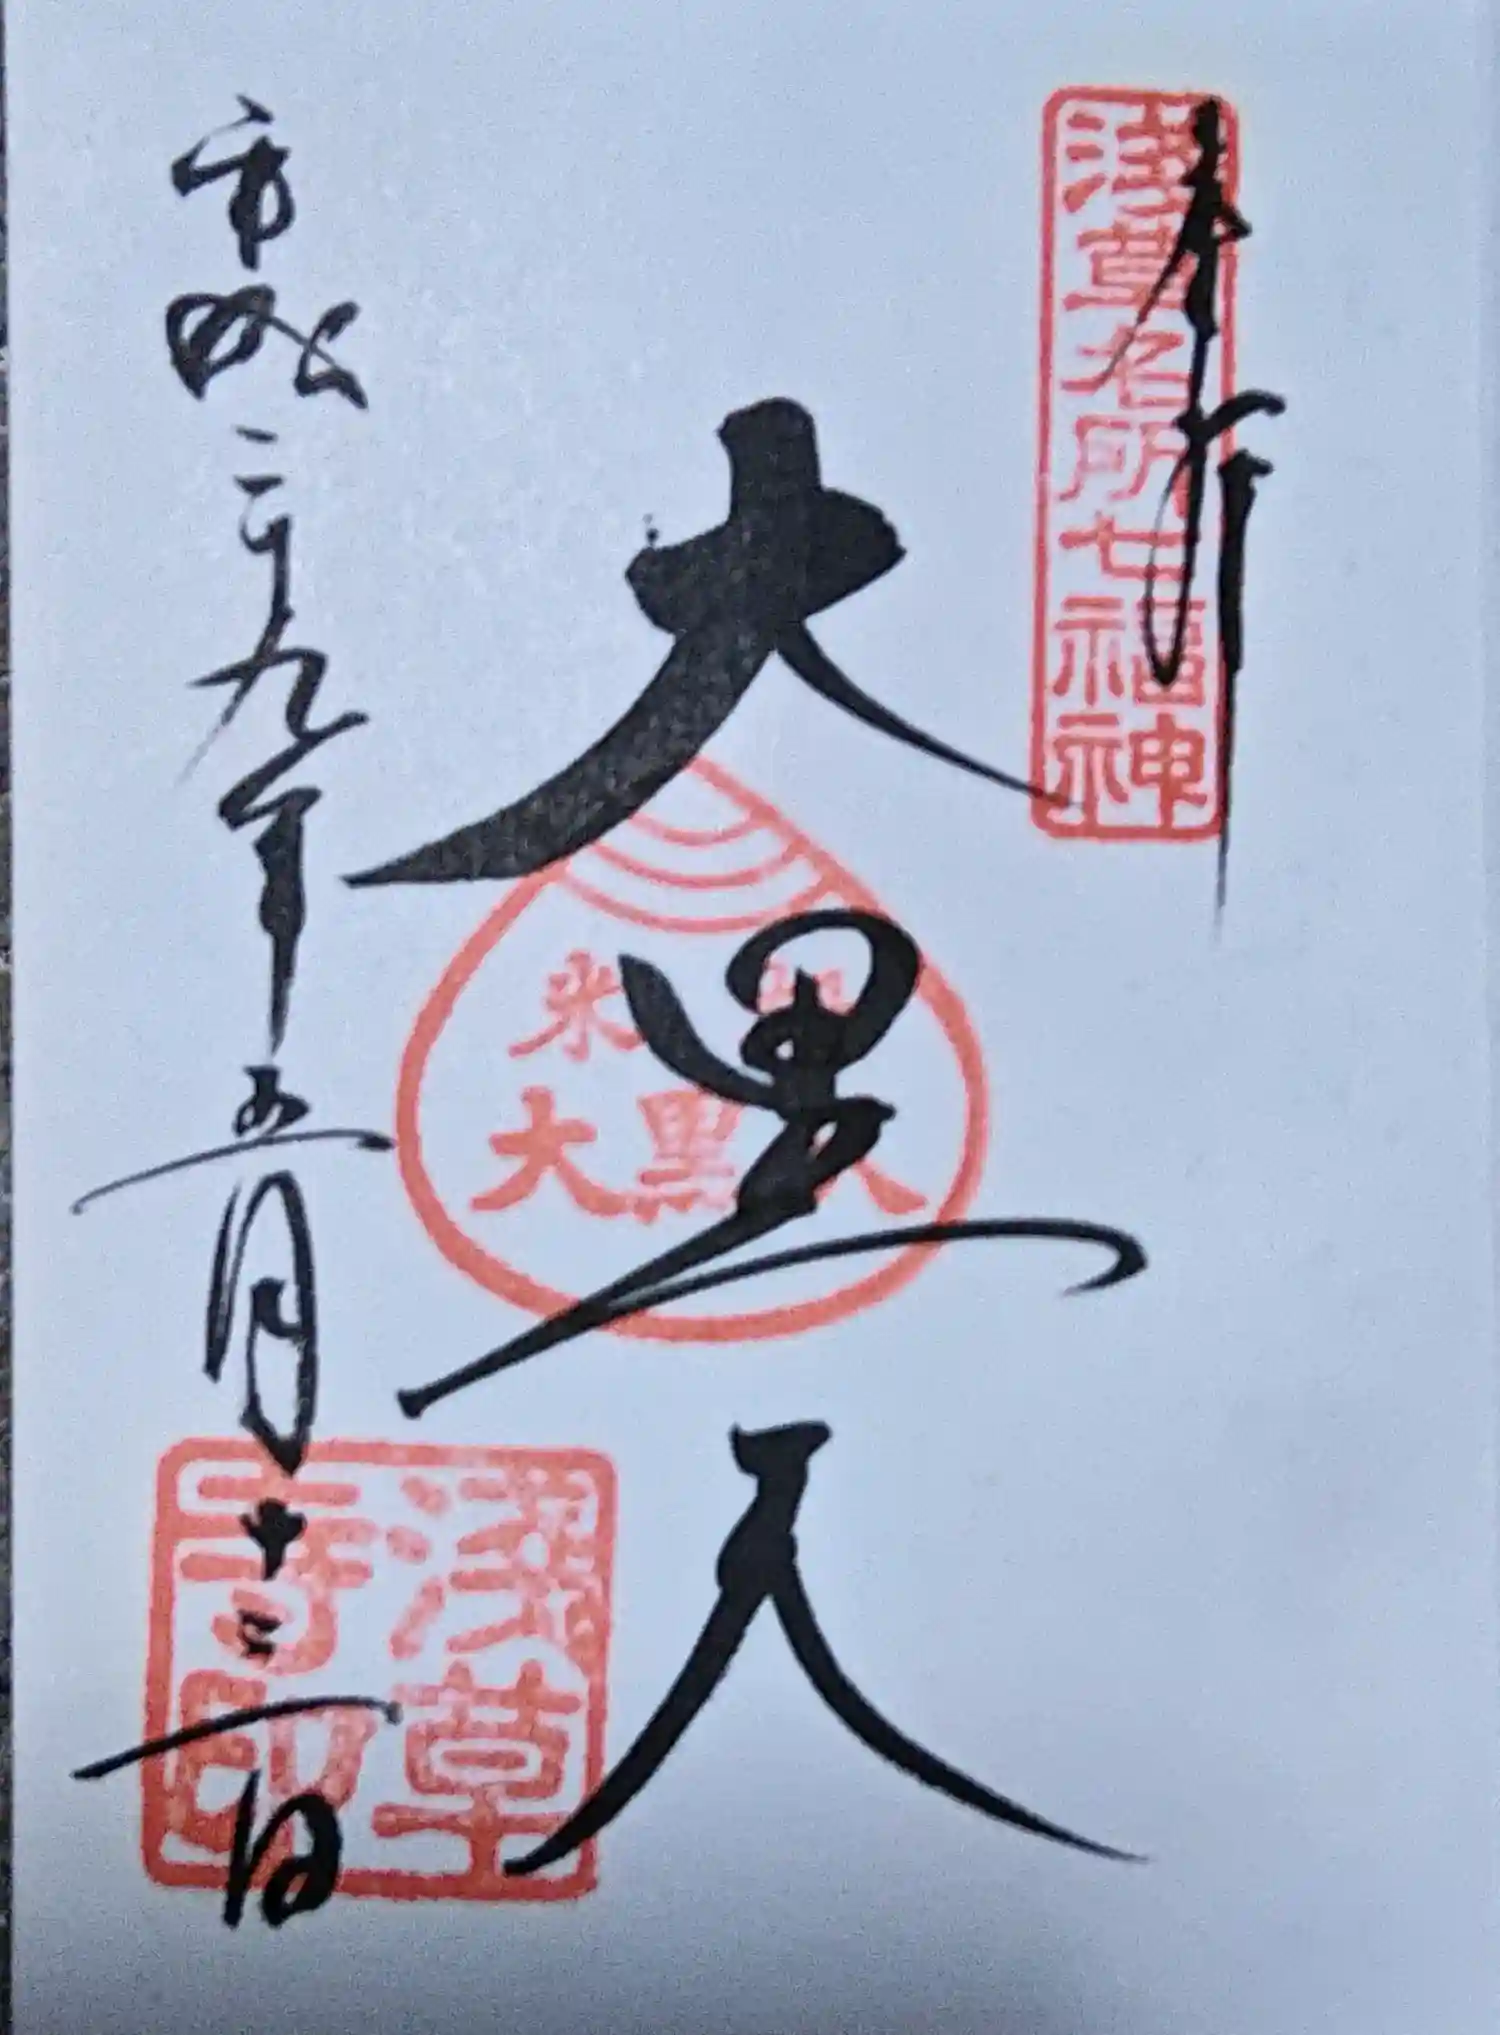 奉拝
浅草名所七福神
大黒天
米
大黒天
平成二十九年五月十三日
淺草寺印